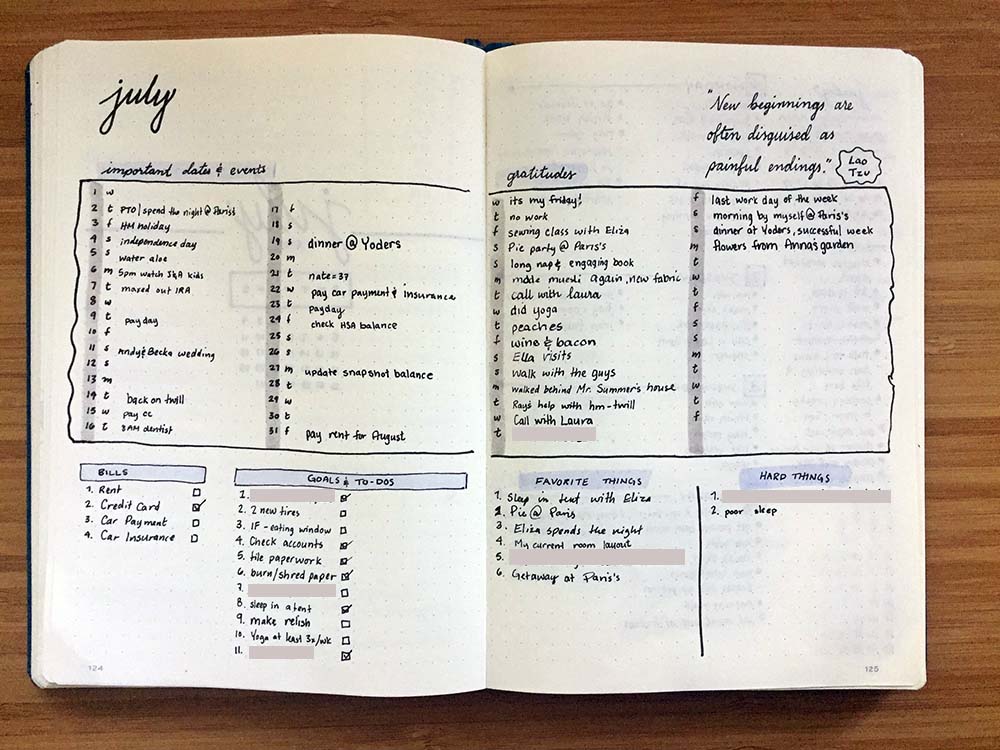 july
important dates & events
1 w
2 t PTO | spend the night @ Paris's
3 f HM holiday
4 s independence day
5 s water aloe
6 m 5pm watch S&A kids
7 t maxed out IRA
8 w
9 t payday
10 f
11 s Andy & Becka wedding
12 s
13 m
14 t back on twill
15 w pay cc
16 t 8AM dentist
17 f
18 s
19 s dinner @ Yoders
20 m
21 t nate=37
22 w pay car payment & insurance
23 t payday
24 f check HSA balance
25 s
26 s
27 m update snapshot balance
28 t
29 w
30 t
31 f pay rent for August
BILLS
1. Rent
2. Credit Card
3. Car Payment
4. Car Insurance
GOALS & TO-DOS
1.
2. 2 new tires
3. IF-eating window
4. Check accounts
5. file paperwork
6. burn/shred paper
7.
8. sleep in a tent
9. make relish
10. Yoga at least 3x/wk
11.
124
"New beginnings are
often disguised as
painful endings."
Lao
Tzu
gratitudes
w its my friday!
t no work
f sewing class with Eliza
s Pie party @ Paris's
s long nap & engaging book
m made muesli again, new fabric
t call with laura
w did yoga
t peaches
f wine & bacon
s Ella visits
s walk with the guys
m walked behind Mr. Summer's house
t Ray's help with hm-twill
w Call with Laura
t
f last work day of the week
s morning by myself @ Paris's
s dinner at Yoders, successful week
m flowers from Anna's garden
t
w
t
f
s
s
m
t
w
t
f
FAVORITE THINGS
1. Sleep in tent with Eliza
2. Pie @ Paris
3. Eliza spends the night
4. My current room layout
5.
6. Getaway at Paris's
HARD THINGS
1.
2. poor sleep
125